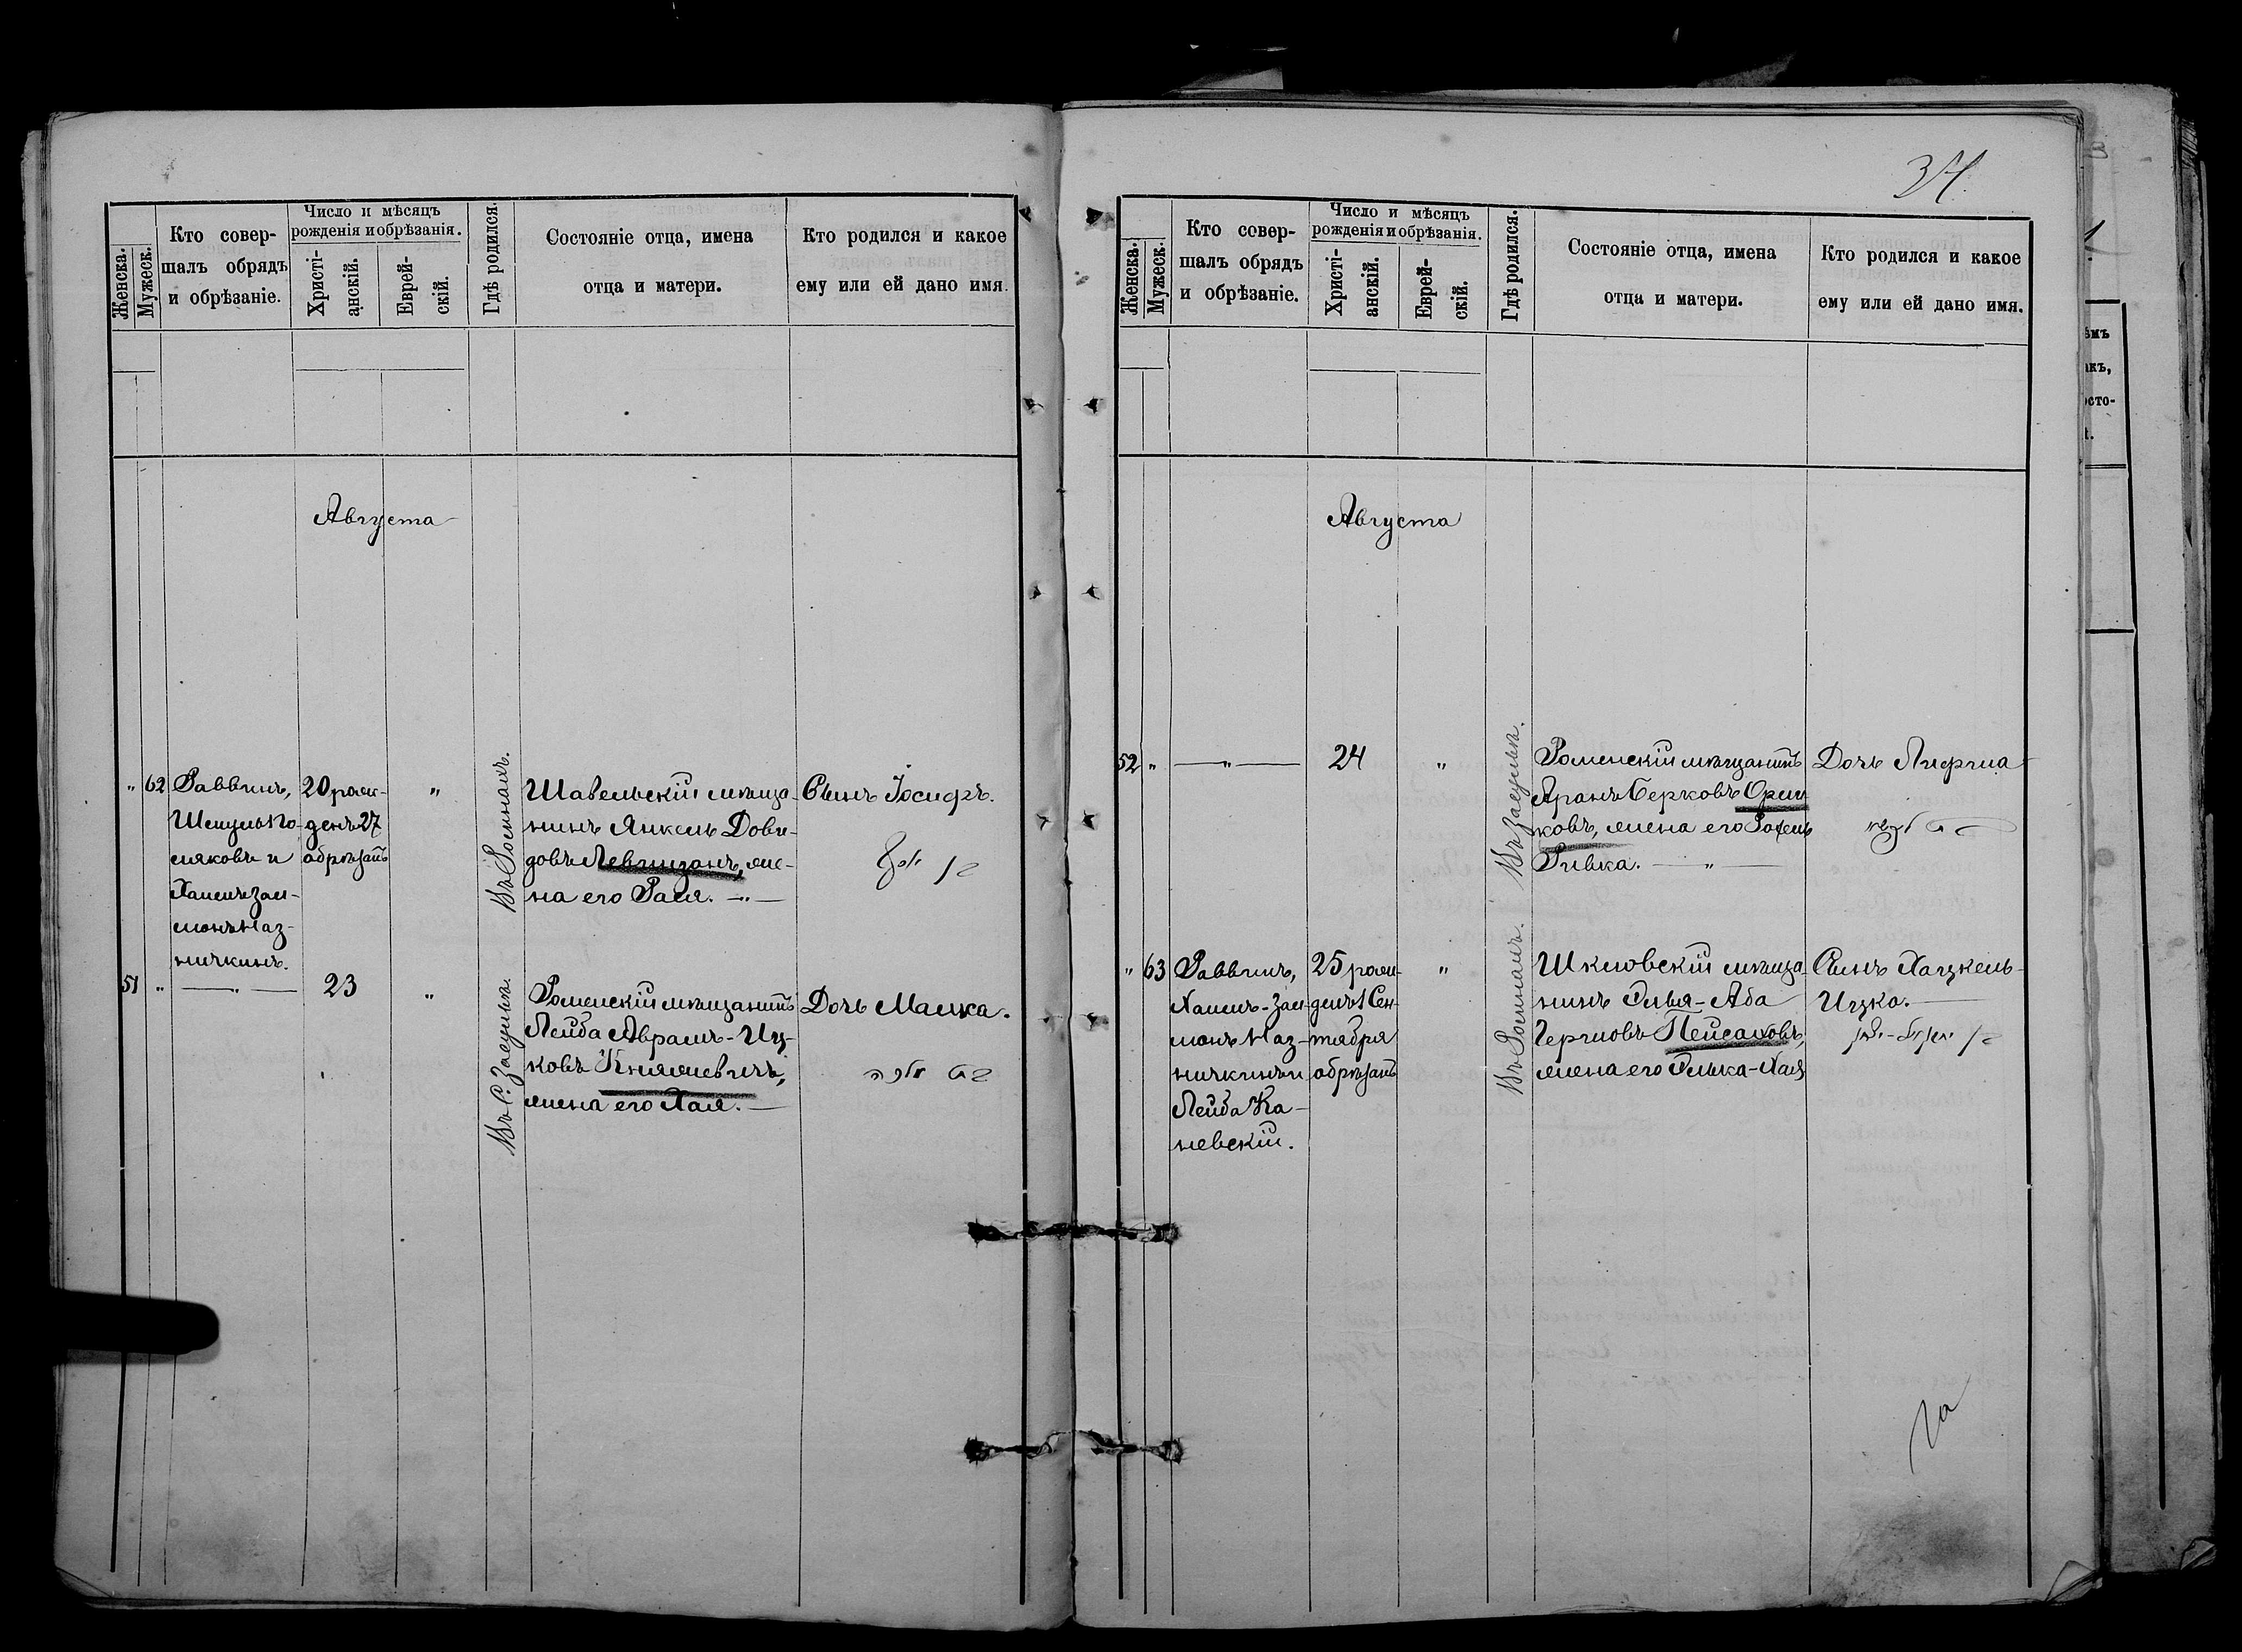 34.
Женска.
Мужеск.
Кто совер-
шалъ обрядъ
и обрѣзаніе.
Число и мѣсяцъ
рожденія и обрѣзанія.
Христі-
анскій.
Еврей-
скій.
Гдѣ родился.
Состояніе отца, имена
отца и матери.
Кто родился и какое
ему или ей дано имя.
Августа
" 62
Раввинъ,
и
Хаимъ Зал-
монъ Маз-
ничкинъ.
20 рож-
денъ 27
обрѣзанъ
"
Въ Ромнахъ.
Шавельскій мѣща-
нинъ Янкель Дови-
довъ Левинзонъ, же-
на его Рася. — " —
Сынъ Іосифъ.
בן יוסף
51 "
— " —
23
"
Въ С.
Роменскій мѣщанинъ
Лейба Абрамъ-Иц-
ковъ Княжевичъ,
жена его Хая. —
Дочь Малка.
בת מלכה
Женска.
Мужеск.
Кто совер-
шалъ обрядъ
и обрѣзаніе.
Число и мѣсяцъ
рожденія и обрѣзанія.
Христі-
анскій.
Еврей-
скій.
Гдѣ родился.
Состояніе отца, имена
отца и матери.
Кто родился и какое
ему или ей дано имя.
Августа
52 "
— " —
24
"
Роменскій мѣщанинъ
Аронъ Берковъ
жена его Рохель
Ривка. — " —
Дочь
בת
" 63
Раввинъ,
Хаимъ-Зал-
монъ Маз-
ничкинъ и
Лейба Ка-
невскій.
25 рож-
денъ 1 Сен-
тября
обрѣзанъ
"
Въ Ромнахъ.
Шкловскій мѣща-
нинъ Гилья-Аба
Пейсаховъ,
жена его Гилька-Хая
Сынъ Хацкель-
Ицко.
בן חצקל-יצחק